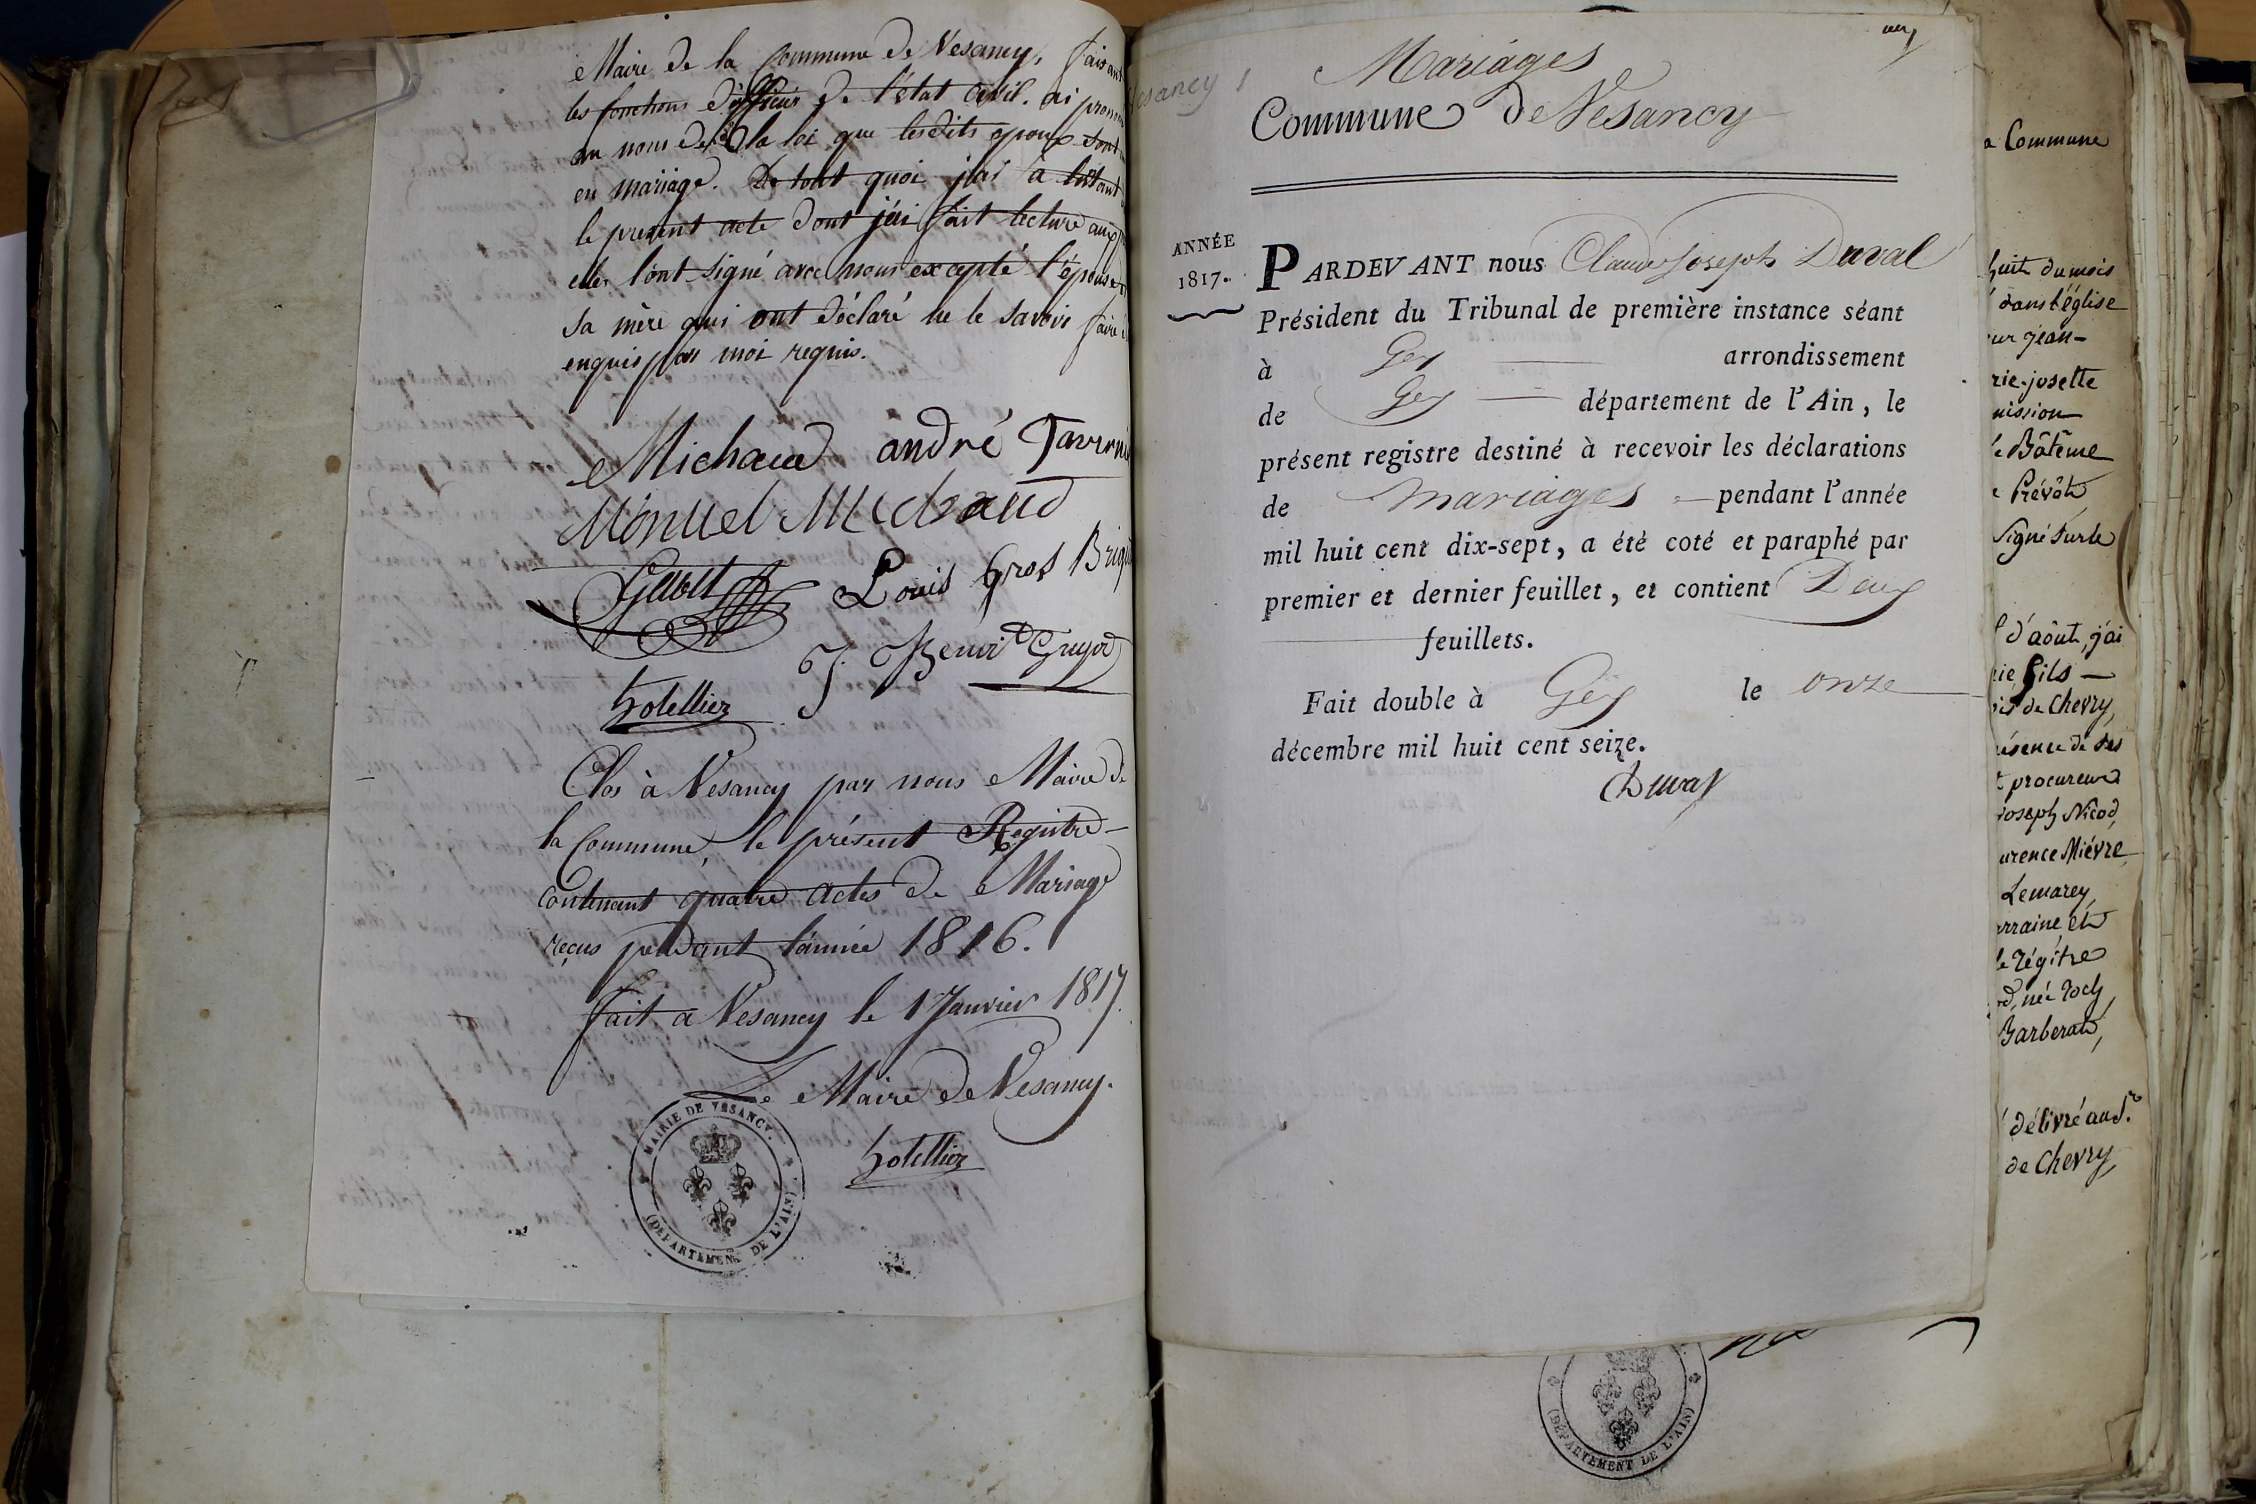 Maire de la Commune de Vesancy, faisant
les fonctions d'officier de l'état civil. ai
au nom de la loi que lesdits époux sont
en mariage. De tout quoi j'ai à l'instant
le present acte dont j'ai fait lecture aux
elles l'ont signé avec nous excepté l'épouse
sa mère qui ont déclaré ne le savoir faire
enquis par moi requis.
Michaud andré
Michaud
Louis Gros
J. Benoit Guyot
hotellier
Clos à Vesancy par nous Maire de
la Commune, le présent Registre
contenant quatre actes de Mariage
reçus pendant l'année 1816.
fait à Vesancy le 1 Janvier 1817.
Le Maire de Vesancy.
hotellier
MAIRIE DE VESANCY.
(DÉPARTEMENT DE L'AIN)
Vesancy 1
Mariages
Commune de Vesancy
ANNÉE
1817.
PARDEVANT nous Claude Joseph Duval
Président du Tribunal de première instance séant
à Gex arrondissement
de Gex département de l'Ain, le
présent registre destiné à recevoir les déclarations
de mariages pendant l'année
mil huit cent dix-sept, a été coté et paraphé par
premier et dernier feuillet, et contient Deux
feuillets.
Fait double à Gex le onze
décembre mil huit cent seize.
Duval
a Commune
huit du mois
dans l'église
ur jean-
rie-josette
mission
le Bâtême
Prévôt
signé surle
d'aôut, j'ai
fils
de Chevry,
ésence de ses
procureur
joseph Nicod,
urence Miévre
Lemarey
rraine, et
le régitre
née Roch
Barberat,
délivré au S.r
de Chevry,
(DÉPARTEMENT DE L'AIN)